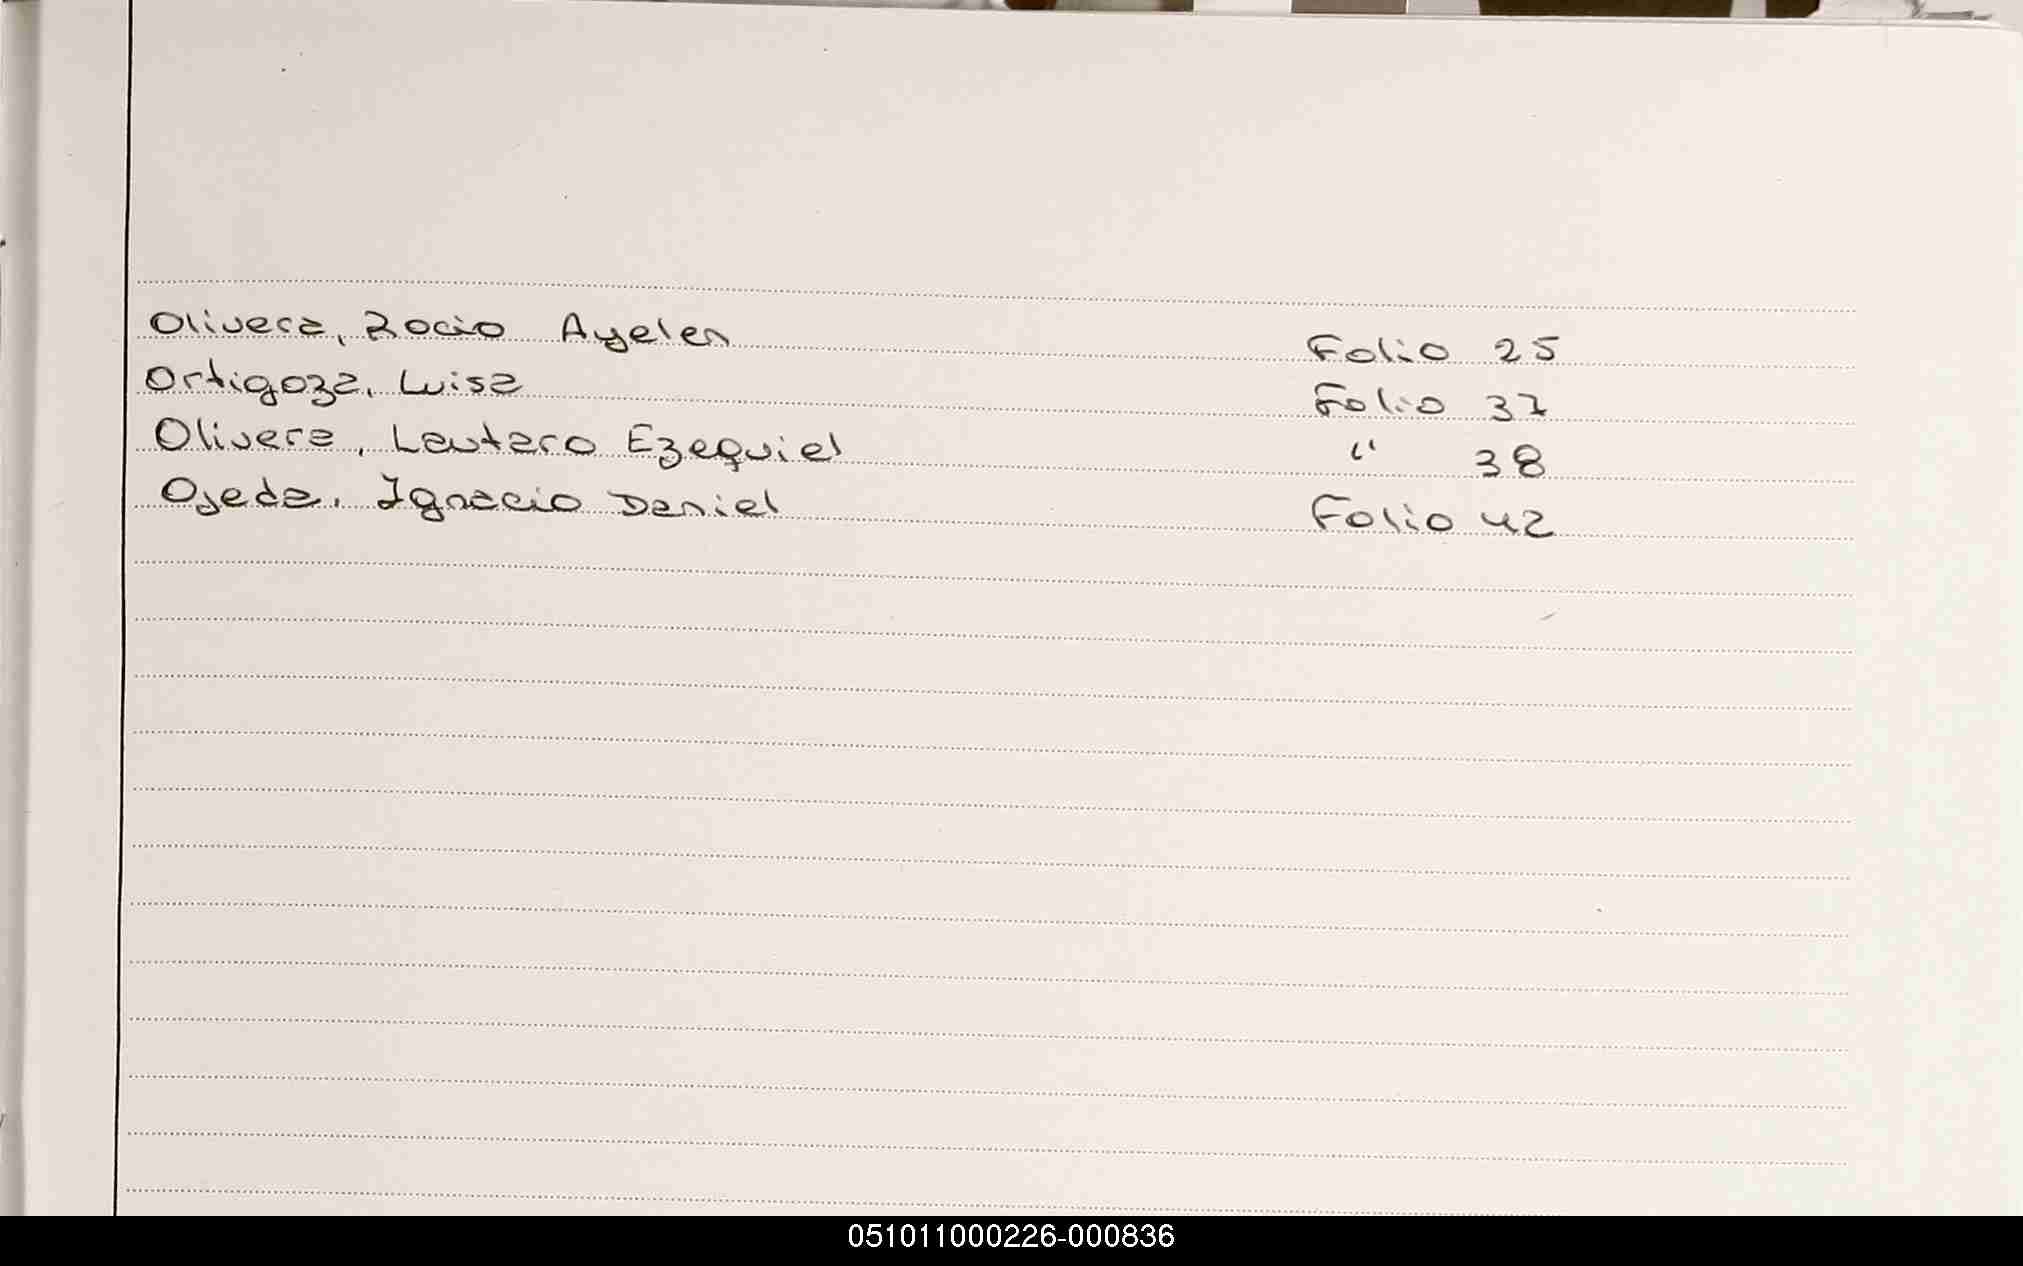 Olivera, Rocio Ayelen Folio 25
Ortigoza, Luisa Folio 37
Olivera, Lautaro Ezequiel " 38
Ojeda, Ignacio Daniel Folio 42
051011000226-000836